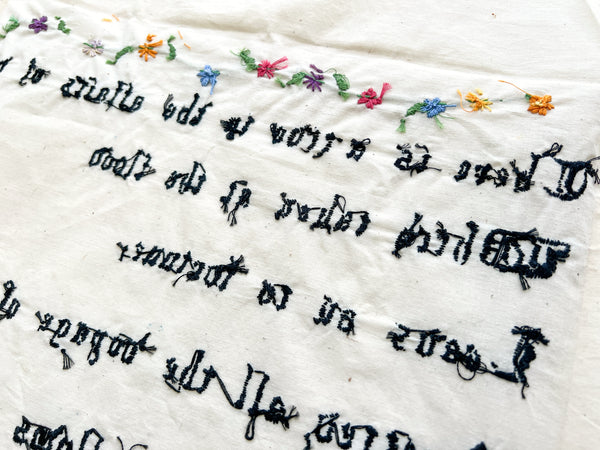 There is a tide in the affairs of
Which taken at the flood
Leads on to fortune
Omitted all the voyage of